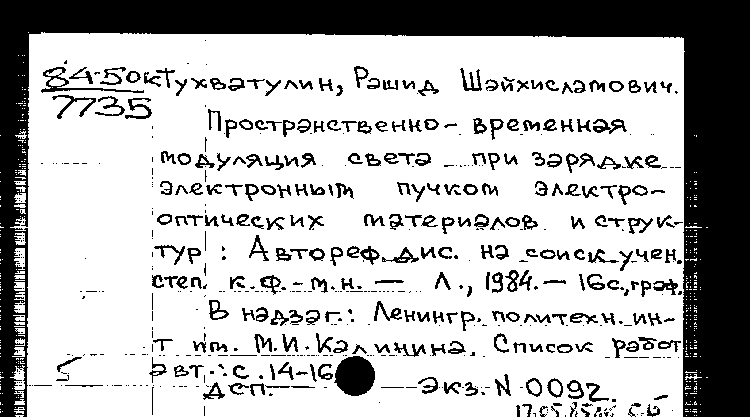 84-50к Тухватулин, Рашид Шайхисламович.
7735
Пространственно-временная
модуляция света при зарядке
электронным пучком электро-
оптических материалов и струк-
тур : Автореф. дис. на соиск. учен.
степ. к.ф.-м.н. — Л., 1984. — 16с., граф.
В надзаг.: Ленингр. политехн. ин-
т им. М.И. Калинина. Список работ
авт.: с. 14-16
ДСП. Экз. N 0092.
17.05.85